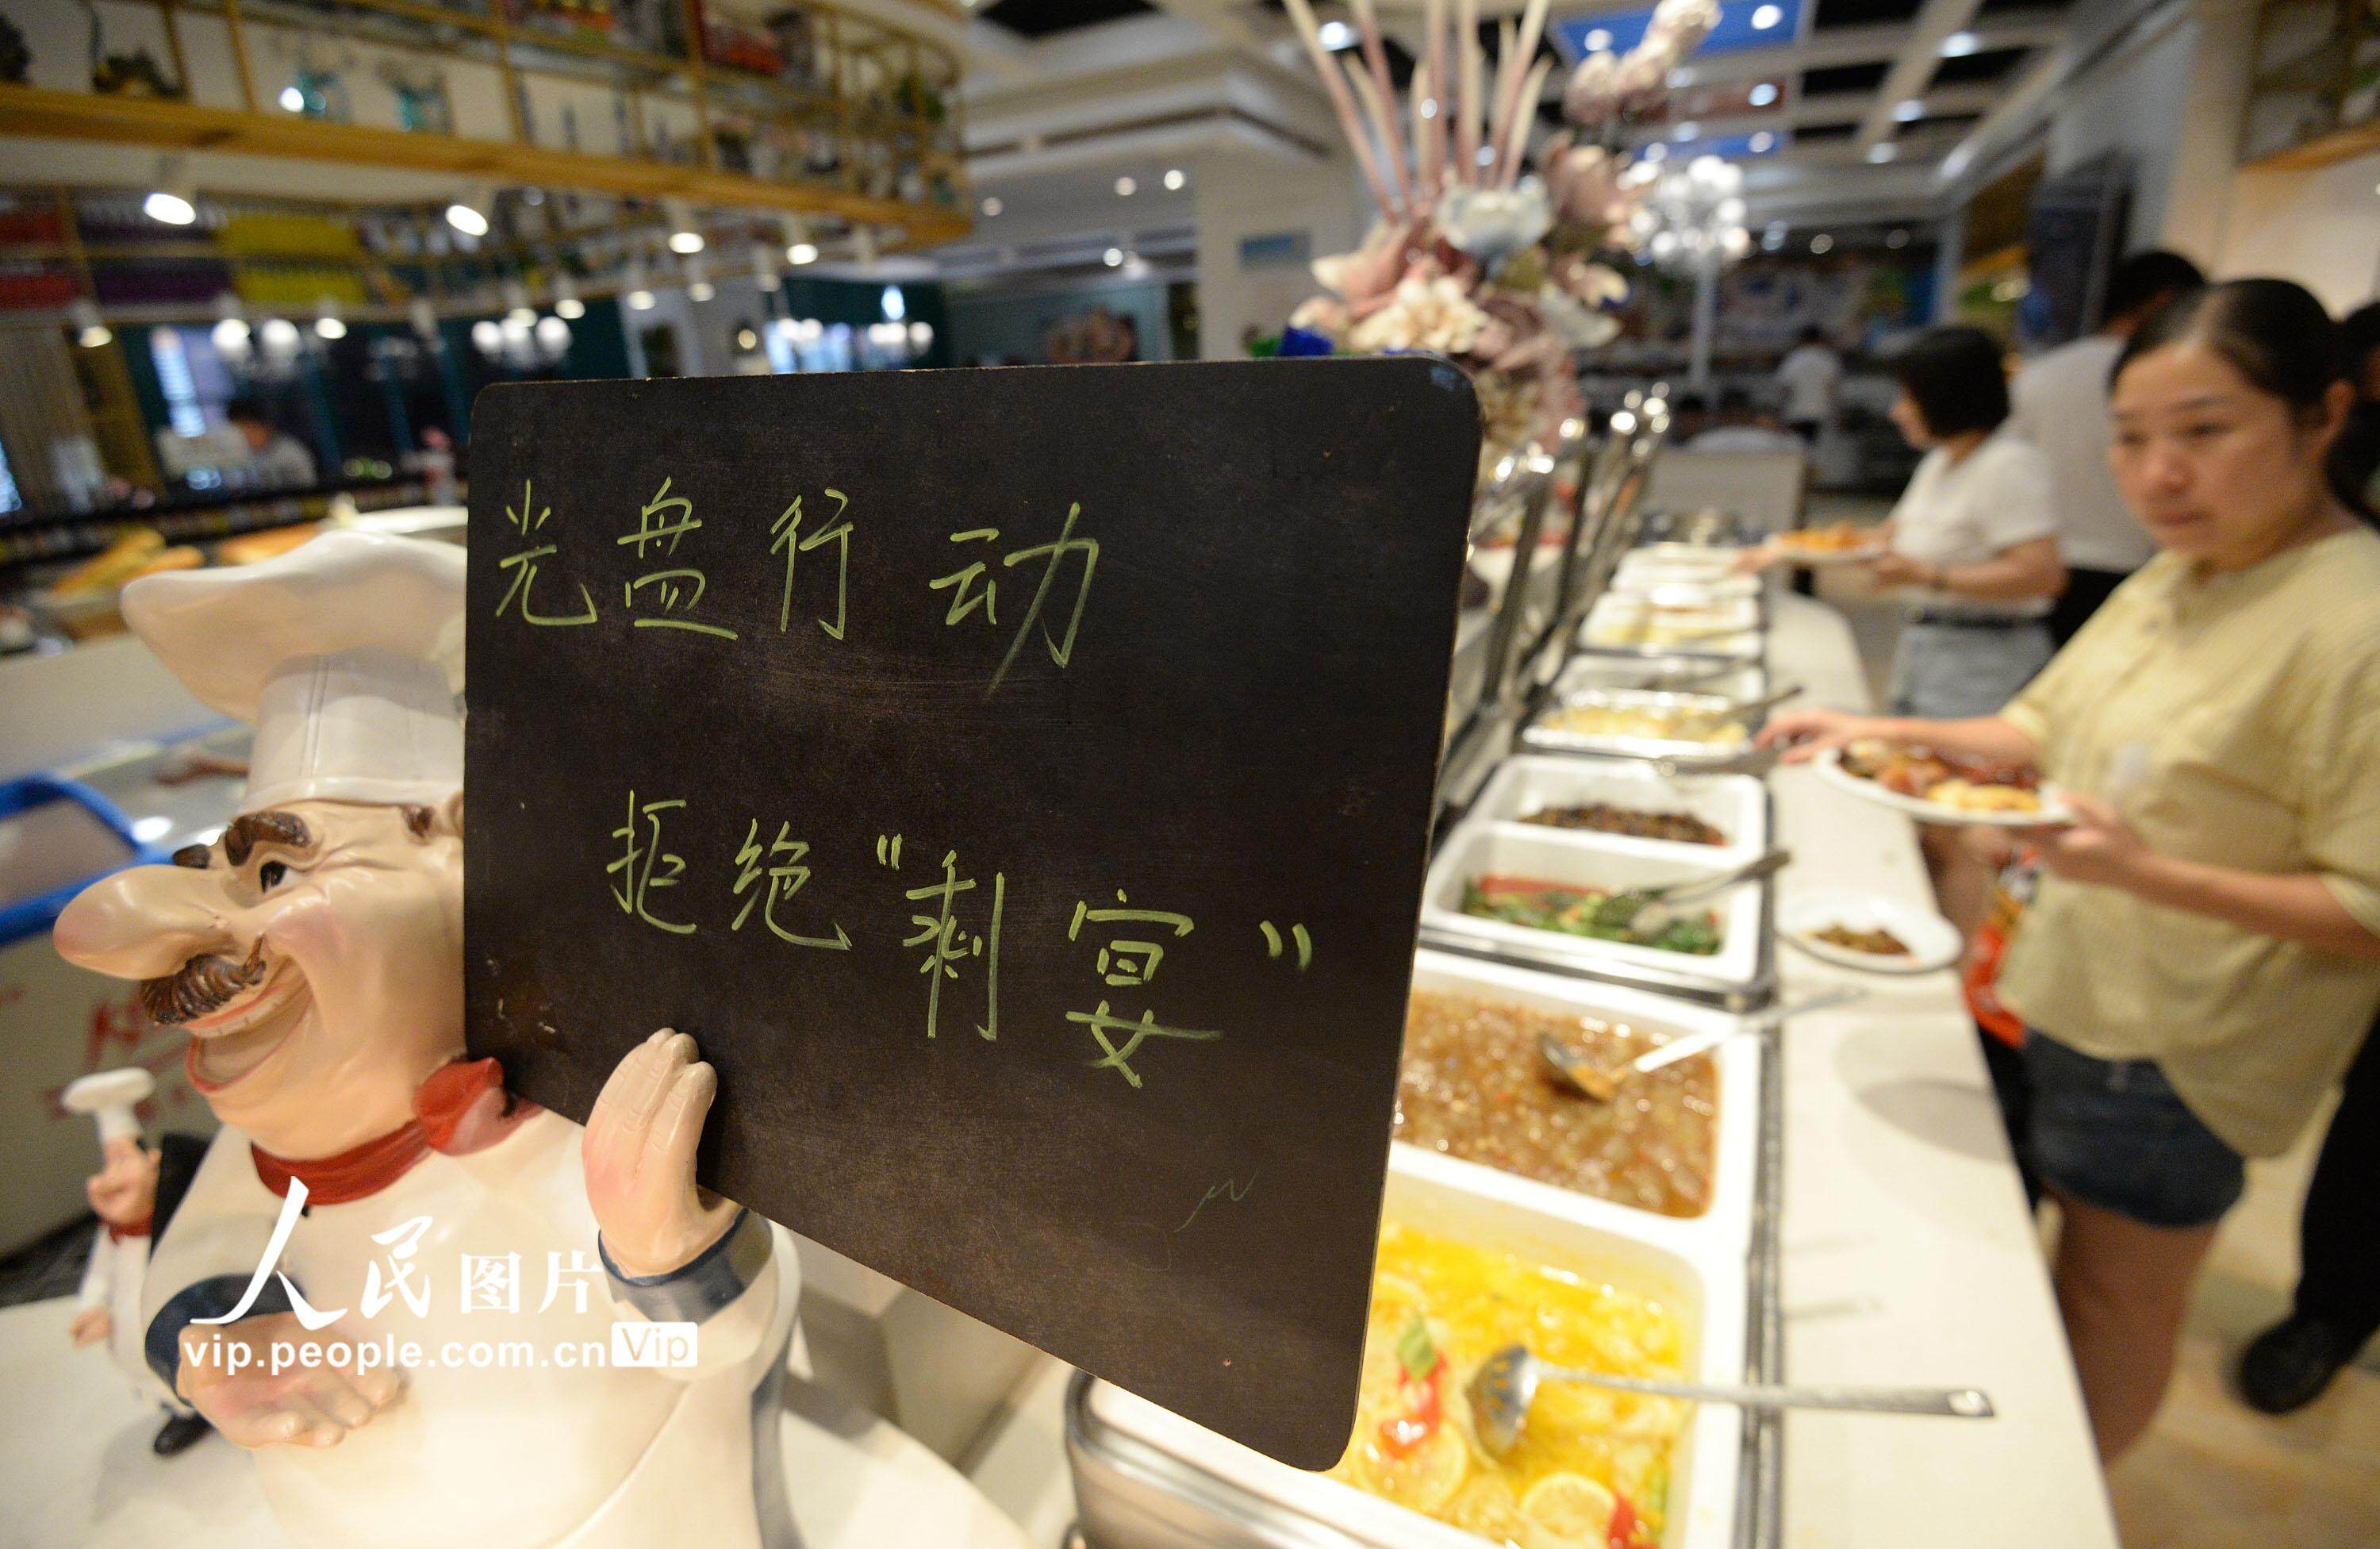 光盘行动
拒绝"剩宴"
人民图片
vip.people.com.cn Vip